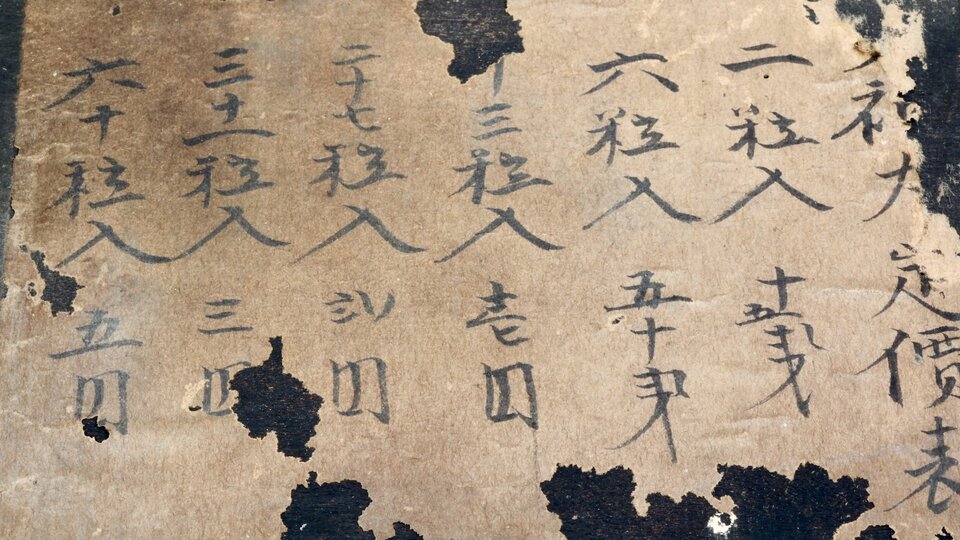 神丸 定價表
二粒入 十五銭
六粒入 五十銭
十三粒入 壱円
二十七粒入 弐円
三十一粒入 三円
六十粒入 五円